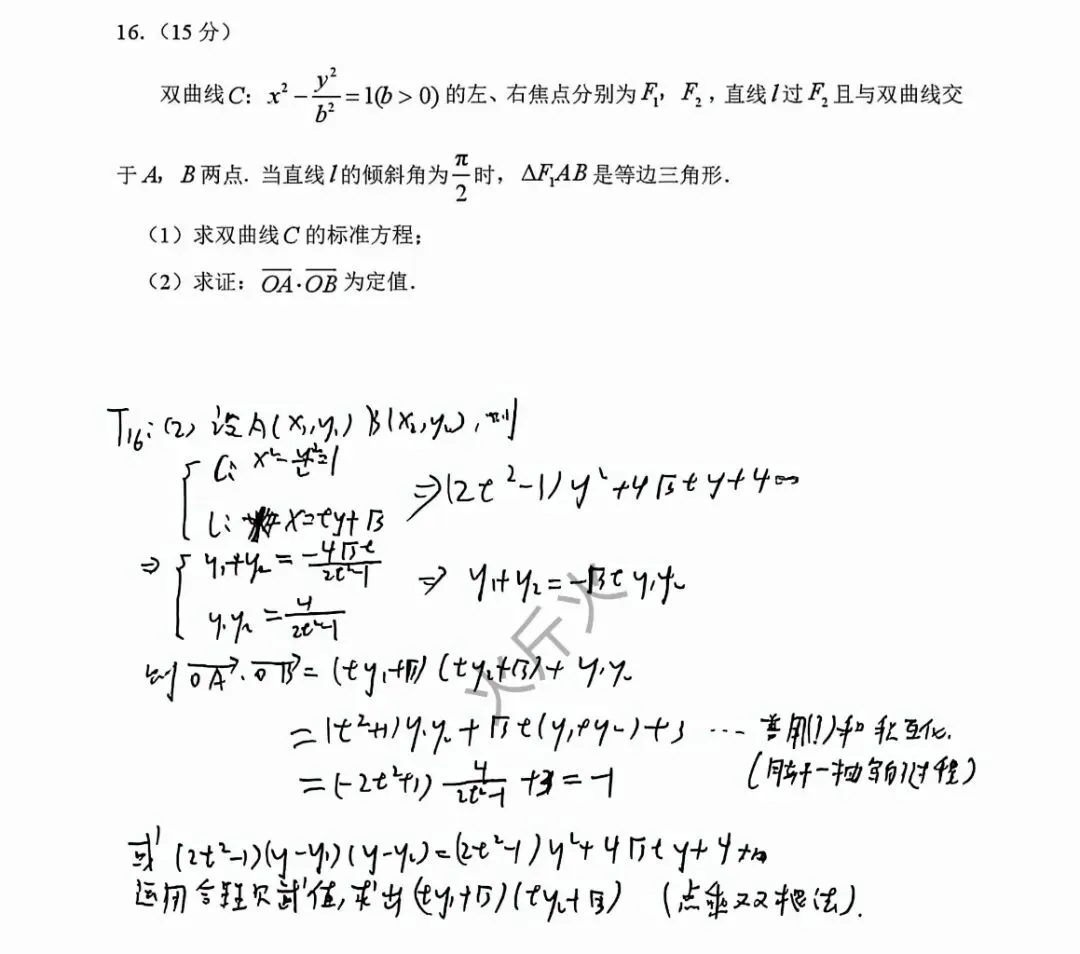 16.（15 分）
双曲线 C：x² - y²/b² = 1(b > 0) 的左、右焦点分别为 F₁，F₂，直线 l 过 F₂ 且与双曲线交
于 A，B 两点. 当直线 l 的倾斜角为 π/2 时，ΔF₁AB 是等边三角形.
（1）求双曲线 C 的标准方程；
（2）求证：OA·OB 为定值.
T₁₆: (2) 设A(x₁,y₁) B(x₂,y₂), 则
C: x² - y²/2 = 1
⇒ (2t²-1)y²+4√3ty+4=0
l: x=ty+√3
⇒ y₁+y₂ = -4√3t/(2t²-1)
⇒ y₁+y₂ = -√3t y₁y₂
y₁y₂ = 4/(2t²-1)
火斤火
则 OA·OB = (ty₁+√3)(ty₂+√3) + y₁y₂
= (t²+1)y₁y₂ + √3t(y₁+y₂)+3 ··· 善用(!)和积互化.
= (-2t²+1) 4/(2t²-1) +3 = -1
或 (2t²-1)(y-y₁)(y-y₂)=(2t²-1)y²+4√3ty+4
运用合理赋值, 求出 (ty₁+√3)(ty₂+√3) (点乘双根法).